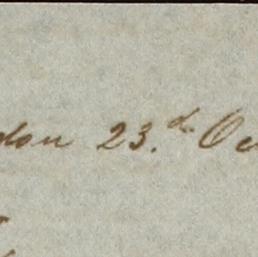 don 23.d Oc